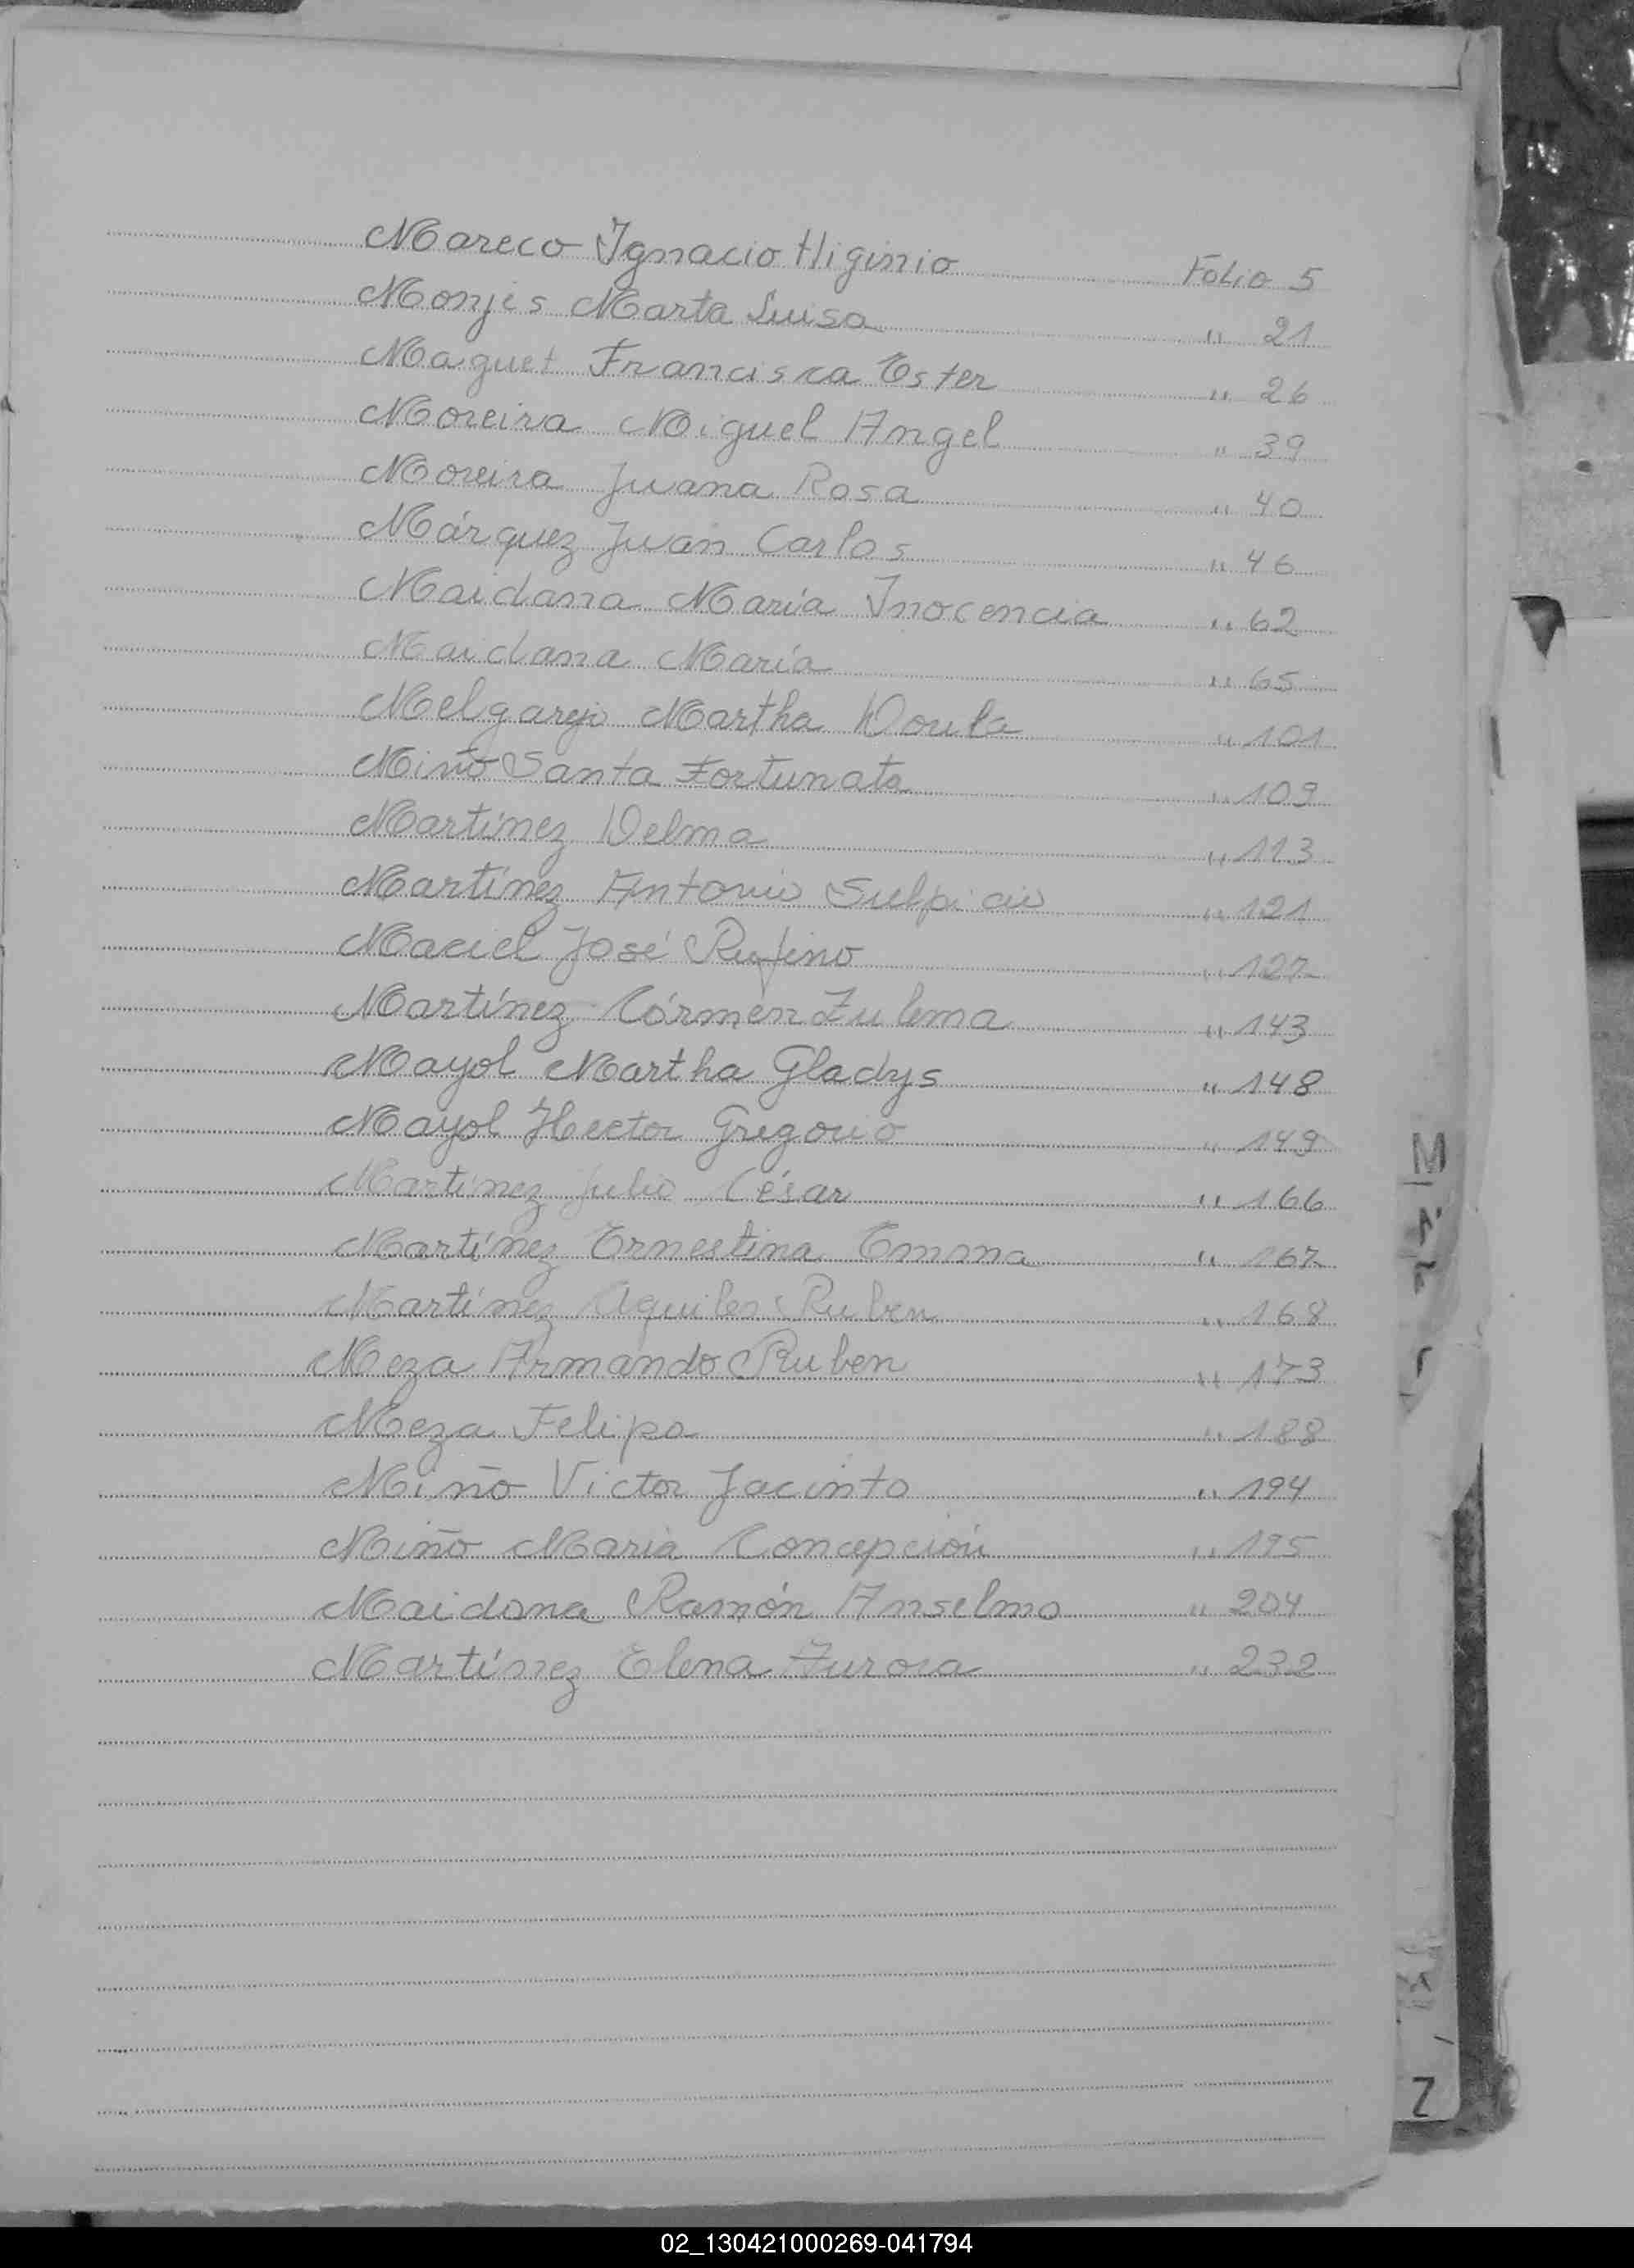 Mareco Ignacio Higinio Folio 5
Monjes Marta Luisa " 21
Maguet Francisca Ester " 26
Moreira Miguel Angel " 39
Moreira Juana Rosa " 40
Márquez Juan Carlos " 46
Maidana María Inocencia " 62
Maidana María " 65
Melgarejo Martha " 101
Miño Santa Fortunata " 109
Martínez Delma " 113
Martínez Antonio Sulpicio " 121
Maciel José Rufino " 127
Martínez Cármen Zulema " 143
Mayol Martha Gladys " 148
Mayol Hector Gregorio " 149
Martínez Julio César " 166
Martínez Ernestina Emma " 167
Martínez Aquiles Ruben " 168
Meza Armando Ruben " 173
Meza Felipa " 188
Miño Victor Jacinto " 194
Miño María Concepción " 195
Maidana Ramón Anselmo " 204
Martínez Elena Aurora " 232
M
Z
02_130421000269-041794